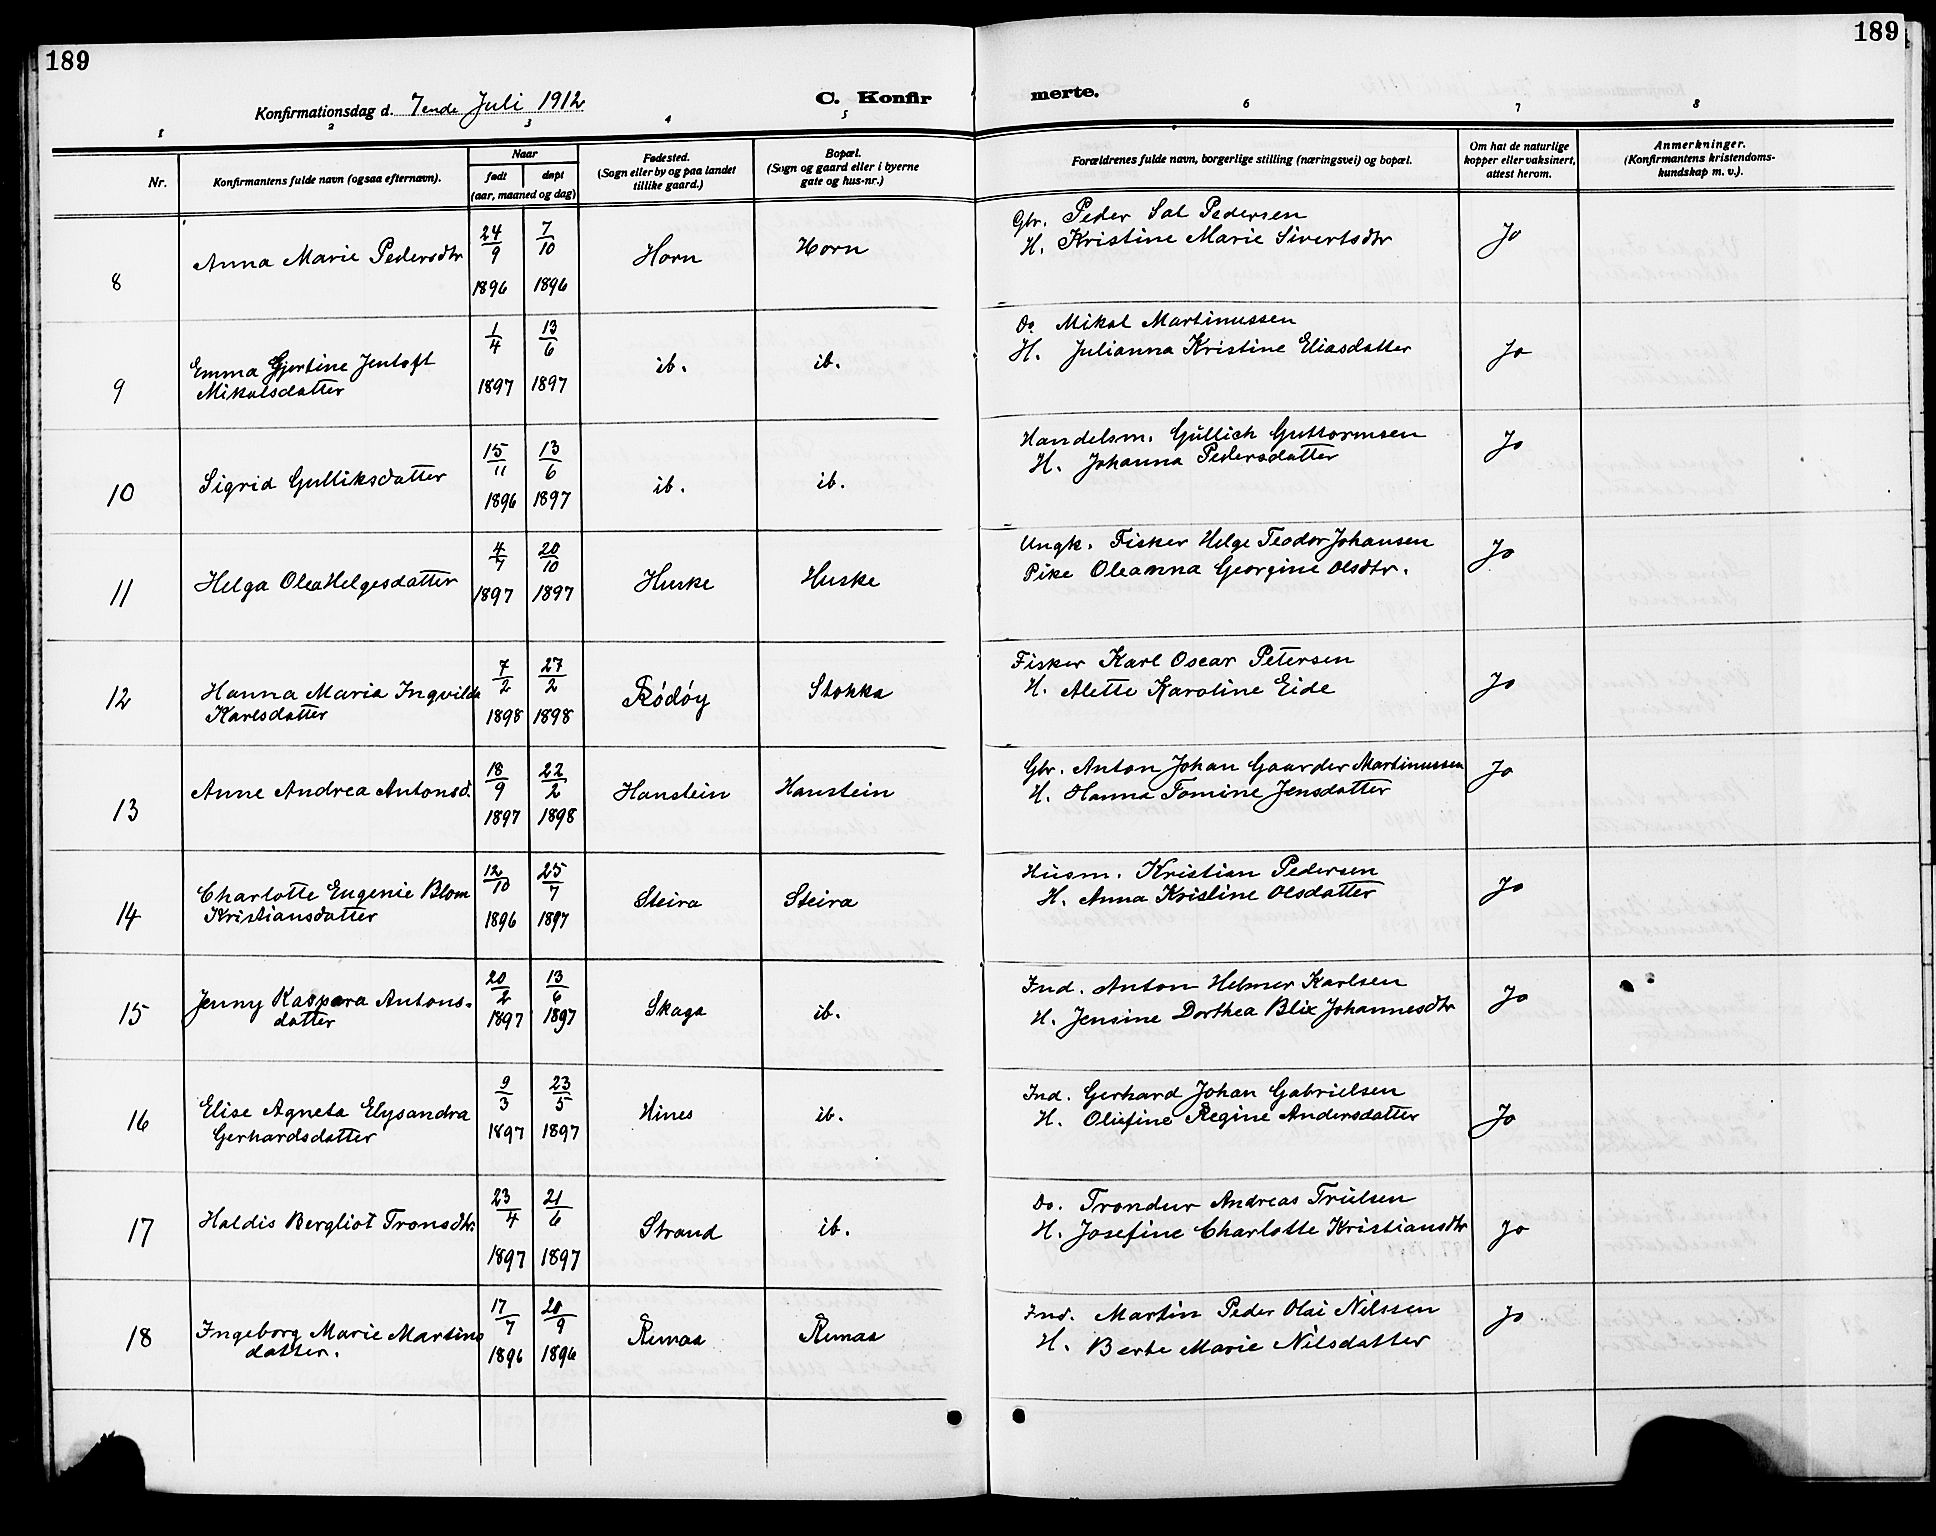 189 189
Konfirmationsdag d. 7ende Juli 1912 C. Konfir merte.
1 2 3 4 5 6 7 8
Nr. Konfirmantens fulde navn (ogsaa efternavn). Naar født døpt (aar, maaned og dag) Fødested. (Sogn eller by og paa landet tillike gaard.) Bopæl. (Sogn og gaard eller i byerne gate og hus-nr.) Forældrenes fulde navn, borgerlige stilling (næringsvei) og bopæl. Om hat de naturlige kopper eller vaksinert, attest herom. Anmerkninger. (Konfirmantens kristendoms-kundskap m. v.).
8 Anna Marie Pedersdtr 24/9 1896 7/10 1896 Horn Horn Gbr. Peder Sal Pedersen
H. Kristine Marie Sivertsdtr Jo
9 Emma Gjertine Jentoft 1/4 1897 13/6 1897 ib. ib. Do Mikal Martinussen
Mikalsdatter H. Julianna Kristine Eliasdatter Jo
10 Sigrid Gulliksdatter 15/11 1896 13/6 1897 ib. ib. Handelsm. Gullich Guttormsen
H. Johanna Pedersdatter Jo
11 Helga Olea Helgesdatter 4/7 1897 20/10 1897 Huske Huske Ungk. Fisker Helge Teodor Johansen
Pike Oleanna Georgine Olsdtr. Jo
12 Hanna Maria Ingvilda 7/2 1898 27/2 1898 Rödöy Stokka Fisker Karl Oscar Petersen
Karlsdatter H. Alette Karoline Eide Jo
13 Anne Andrea Antonsd. 18/9 1897 22/2 1898 Hanstein Hanstein Gbr. Anton Johan Gaarder Martinussen
H. Hanna Tomine Jensdatter Jo
14 Charlotte Eugenie Blom 12/10 1896 25/7 1897 Steira Steira Husm. Kristian Pedersen
Kristiansdatter H. Anna Kristine Olsdatter Jo
15 Jenny Kaspara Antons- 20/2 1897 13/6 1897 Skaga ib. Ind. Anton Helmer Karlsen
datter H. Jensine Dorthea Blix Johannesdtr Jo
16 Elise Agneta Elysandra 9/3 1897 23/5 1897 Hines ib. Ind. Gerhard Johan Gabrielsen
Gerhardsdatter H. Olufine Regine Andersdatter Jo
17 Haldis Bergliot Tronsdtr. 23/4 1897 21/6 1897 Strand ib. Do. Trondur Andreas Trulsen
H. Josefine Charlotte Kristiansdtr Jo
18 Ingeborg Marie Martins 17/7 1896 20/9 1896 Remaa Remaa Ind. Martin Peder Olai Nilssen
datter. H. Berte Marie Nilsdatter Jo